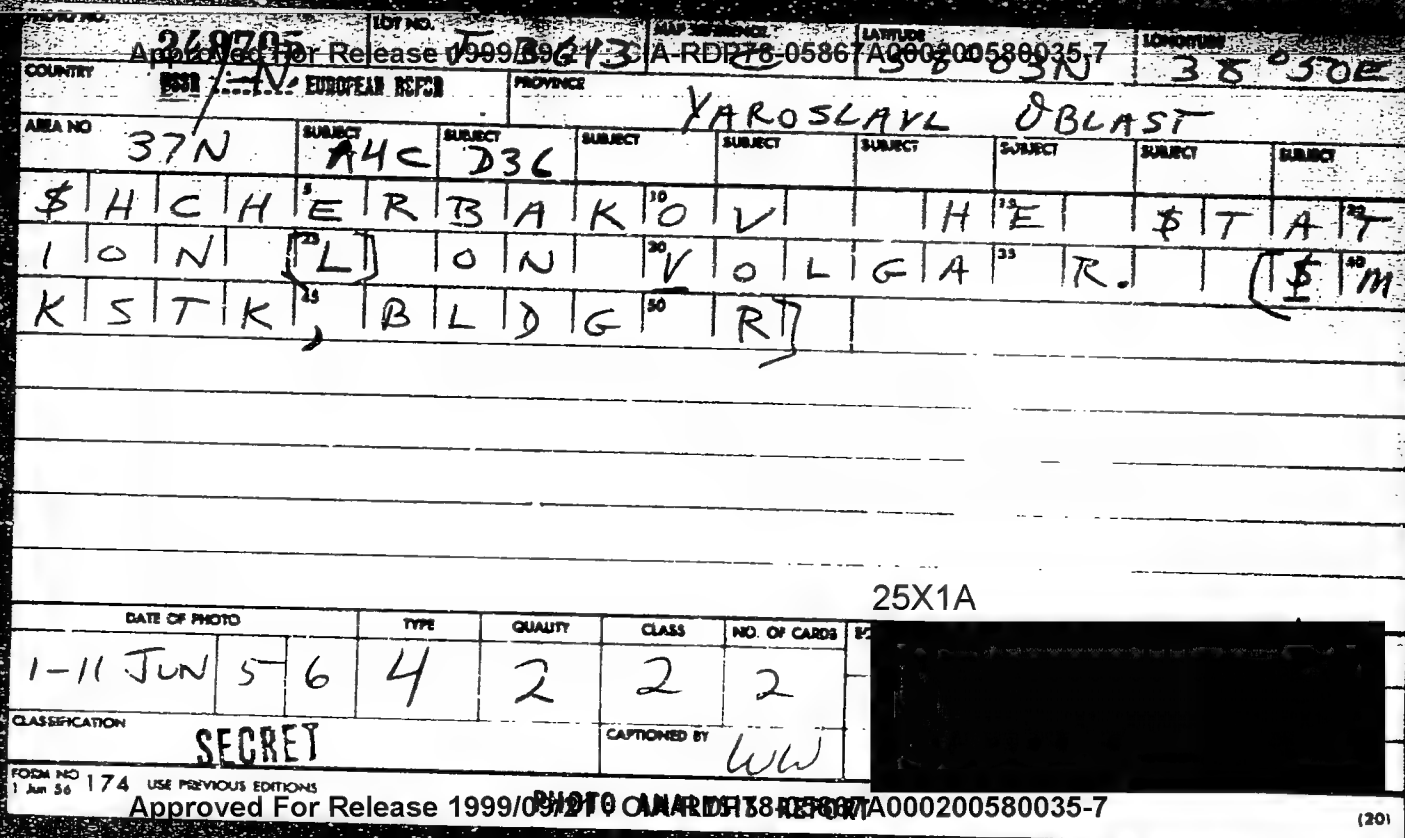 PHOTO NO. LOT NO. MAP REFERENCE LATITUDE LONGITUDE
348705 J-B613 C 58°03N 38°50E
Approved For Release 1999/09/21 : CIA-RDP78-05867A000200580035-7
COUNTRY USSR IV EUROPEAN RSFSR PROVINCE YAROSLAVL OBLAST
AREA NO 37N SUBJECT A4C SUBJECT D36 SUBJECT SUBJECT SUBJECT SUBJECT SUBJECT SUBJECT
$HCHERBAKOV HE $TAT
ION [L] ON VOLGA R. ($M
KSTK, BLDG R]
25X1A
DATE OF PHOTO TYPE QUALITY CLASS NO. OF CARDS
1-11 JUN 56 4 2 2 2
CLASSIFICATION SECRET CAPTIONED BY WW
FORM NO 174 USE PREVIOUS EDITIONS
1 Jun 56
PHOTO ANALYSIS REPORT
Approved For Release 1999/09/21 : CIA-RDP78-05867A000200580035-7
(20)